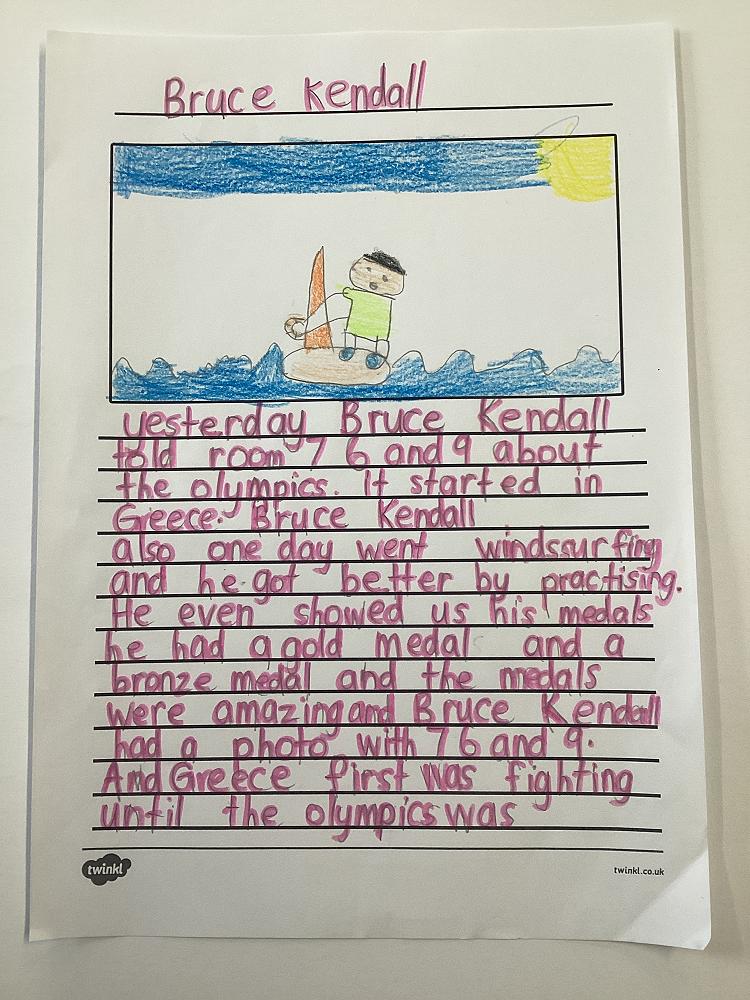 Bruce Kendall
yesterday Bruce Kendall
told room 7 6 and 9 about
the olympics. It started in
Greece. Bruce Kendall
also one day went windssurfing
and he got better by practising.
He even showed us his medals
he had a gold medal and a
bronze medal and the medals
were amazing and Bruce Kendall
had a photo with 7 6 and 9.
And Greece first was fighting
until the olympics was
twinkl twinkl.co.uk